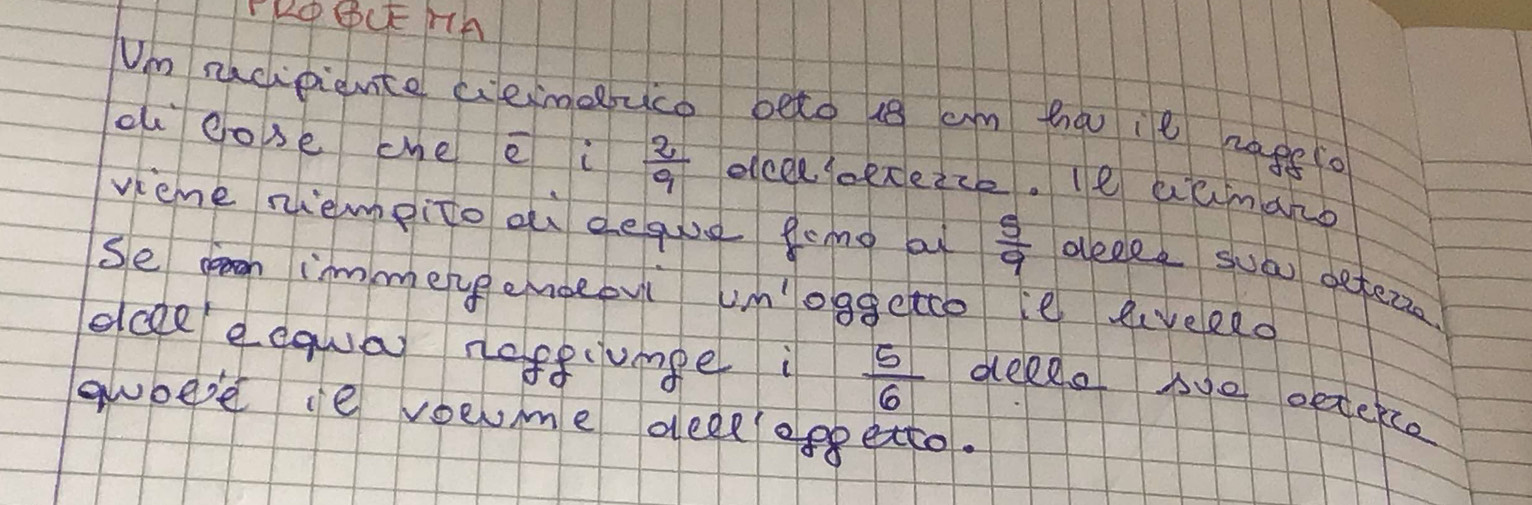 PROBLEMA
Un recipiente cilindrico alto 18 cm ha il raggio
di base che è i 2/9 dell'altezza. Il cilindro
viene riempito di acqua fino ai 5/9 della sua altezza.
Se immergendovi un'oggetto il livello
dell'acqua raggiunge i 5/6 della sua altezza
qual'è il volume dell'oggetto.